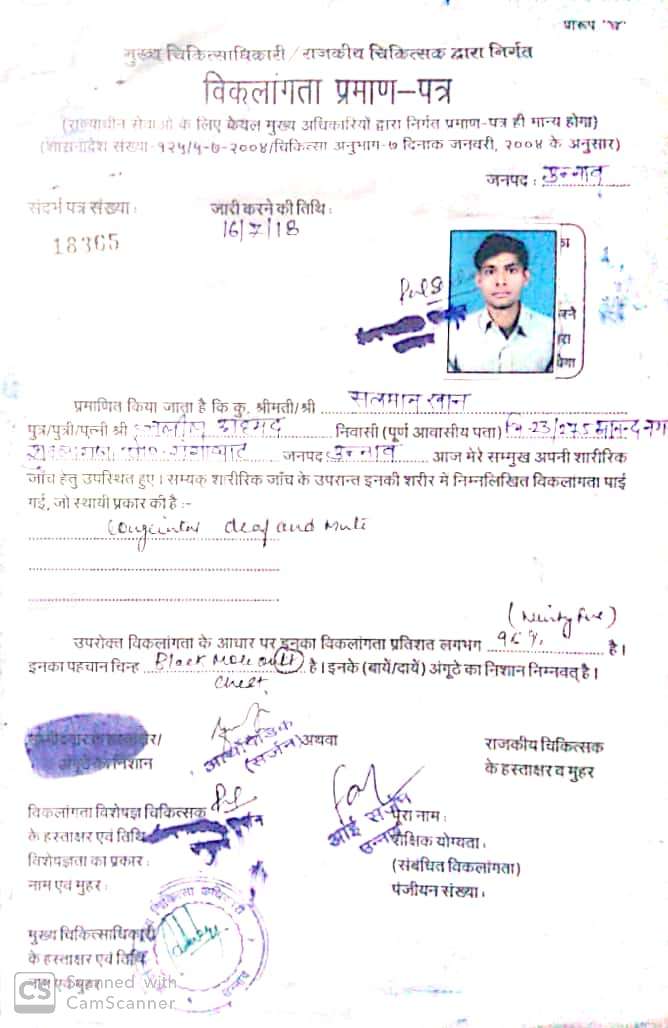 प्रारूप
मुख्य चिकित्साधिकारी/राजकीय चिकित्सक द्वारा निर्गत
विकलांगता प्रमाण-पत्र
(राज्याधीन सेवाओं के लिए केवल मुख्य अधिकारियों द्वारा निर्गत प्रमाण-पत्र ही मान्य होगा)
(शासनादेश संख्या-१२५/५-७-२००४/चिकित्सा अनुभाग-७ दिनाक जनवरी, २००४ के अनुसार)
जनपद : उन्नाव
संदर्भ पत्र संख्या : जारी करने की तिथि :
18365 16/7/18
प्रमाणित किया जाता है कि कु. श्रीमती/श्री सलमान खान
पुत्र/पुत्री/पत्नी श्री अहमद निवासी (पूर्ण आवासीय पता)
जनपद उन्नाव आज मेरे सम्मुख अपनी शारीरिक
जाँच हेतु उपस्थित हुए। सम्यक् शारीरिक जाँच के उपरान्त इनकी शरीर में निम्नलिखित विकलांगता पाई
गई, जो स्थायी प्रकार की है :-
deaf and Mute
(Ninty five)
उपरोक्त विकलांगता के आधार पर इनका विकलांगता प्रतिशत लगभग 95% है।
इनका पहचान चिन्ह Black Mole on Lt है। इनके (बायें/दायें) अंगूठे का निशान निम्नवत् है।
chest.
अंगूठे का निशान
(सर्जन) अथवा
राजकीय चिकित्सक
के हस्ताक्षर व मुहर
विकलांगता विशेषज्ञ चिकित्सक
के हस्ताक्षर एवं तिथि
विशेषज्ञता का प्रकार :
नाम एवं मुहर :
आई सर्जन
उन्नाव
पूरा नाम :
शैक्षिक योग्यता :
(संबंधित विकलांगता)
पंजीयन संख्या :
मुख्य चिकित्साधिकारी
के हस्ताक्षर एवं तिथि
नाम एवं मुहर
CS Scanned with
CamScanner